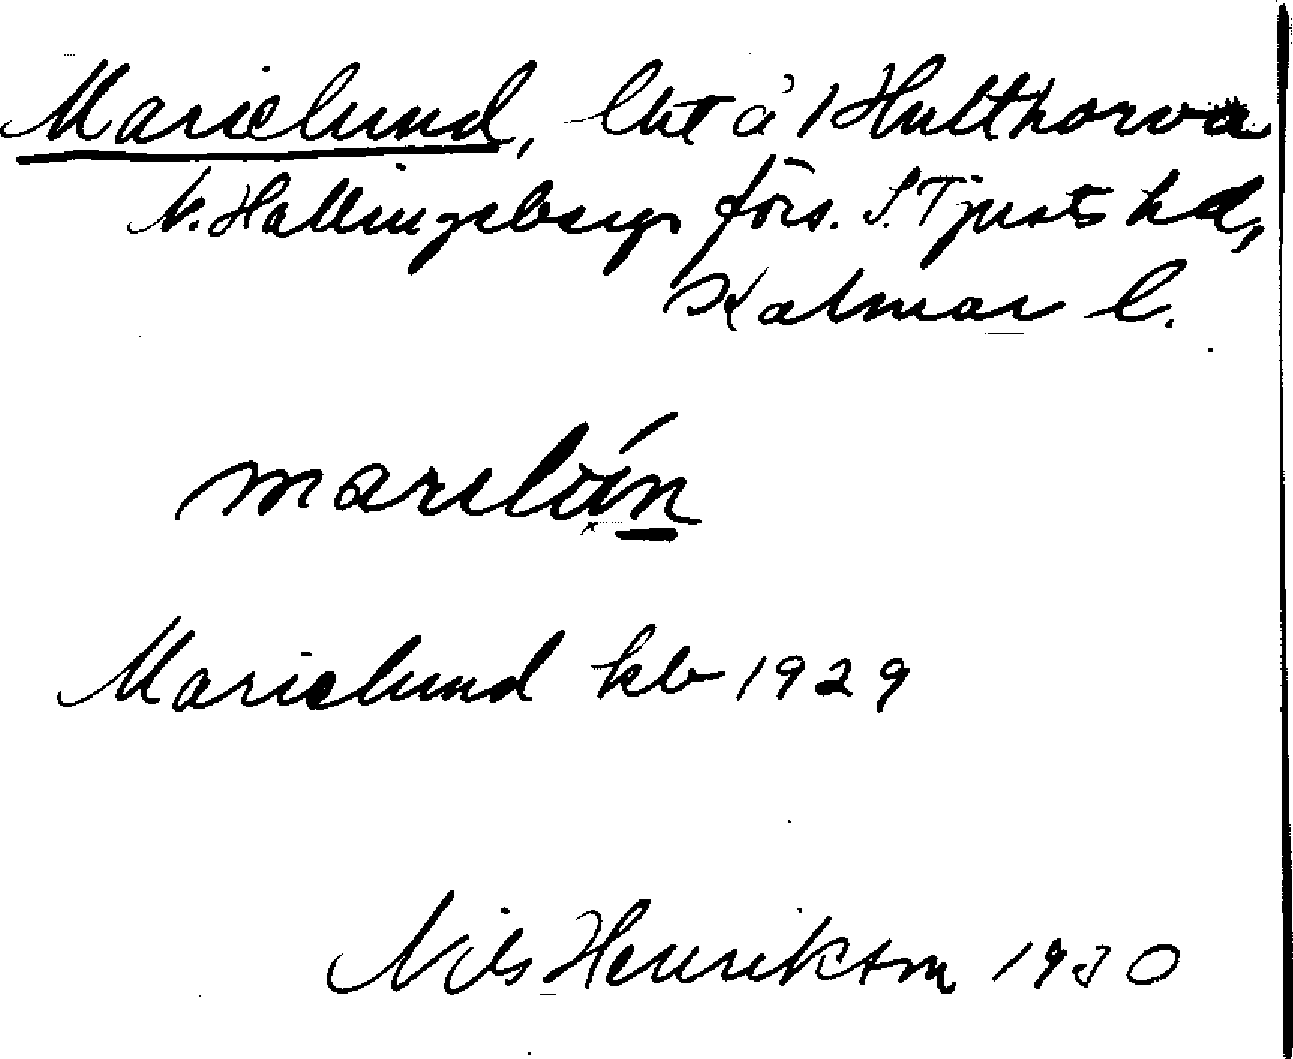 Marielund, lht å 1 Hulthorva
V. Hallingebergs förs. S. Tjusts hd,
Kalmar l.
Marielund kb 1929
Nils Henrikson 1930